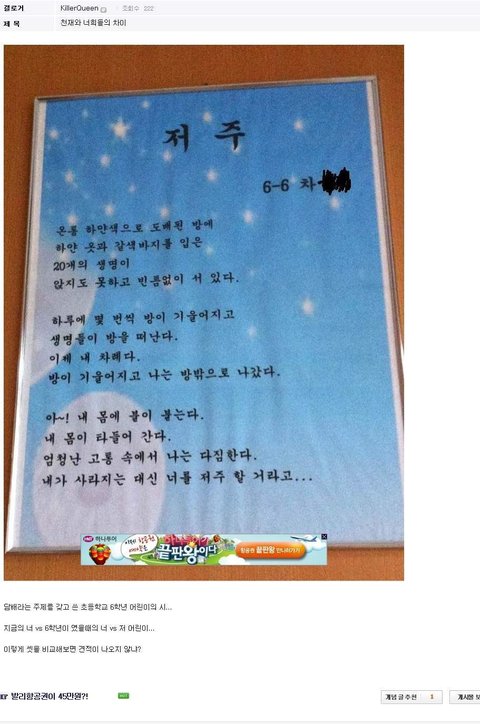 글로거 KillerQueen 조회수 222
제 목 천재와 너희들의 차이
저 주
6-6 차
온통 하얀색으로 도배된 방에
하얀 옷과 갈색바지를 입은
20개의 생명이
앉지도 못하고 빈틈없이 서 있다.
하루에 몇 번씩 방이 기울어지고
생명들이 방을 떠난다.
이제 내 차례다.
방이 기울어지고 나는 방밖으로 나갔다.
아~! 내 몸에 불이 붙는다.
내 몸이 타들어 간다.
엄청난 고통 속에서 나는 다짐한다.
내가 사라지는 대신 너를 저주 할 거라고...
하나투어
끝판왕이다
항공권 끝판왕 만나러가기
담배라는 주제를 갖고 쓴 초등학교 6학년 어린이의 시...
지금의 너 vs 6학년이 였을때의 너 vs 저 어린이...
이렇게 셋을 비교해보면 견적이 나오지 않냐?
발리항공권이 45만원?!
개념글 추천 1
게시물 보